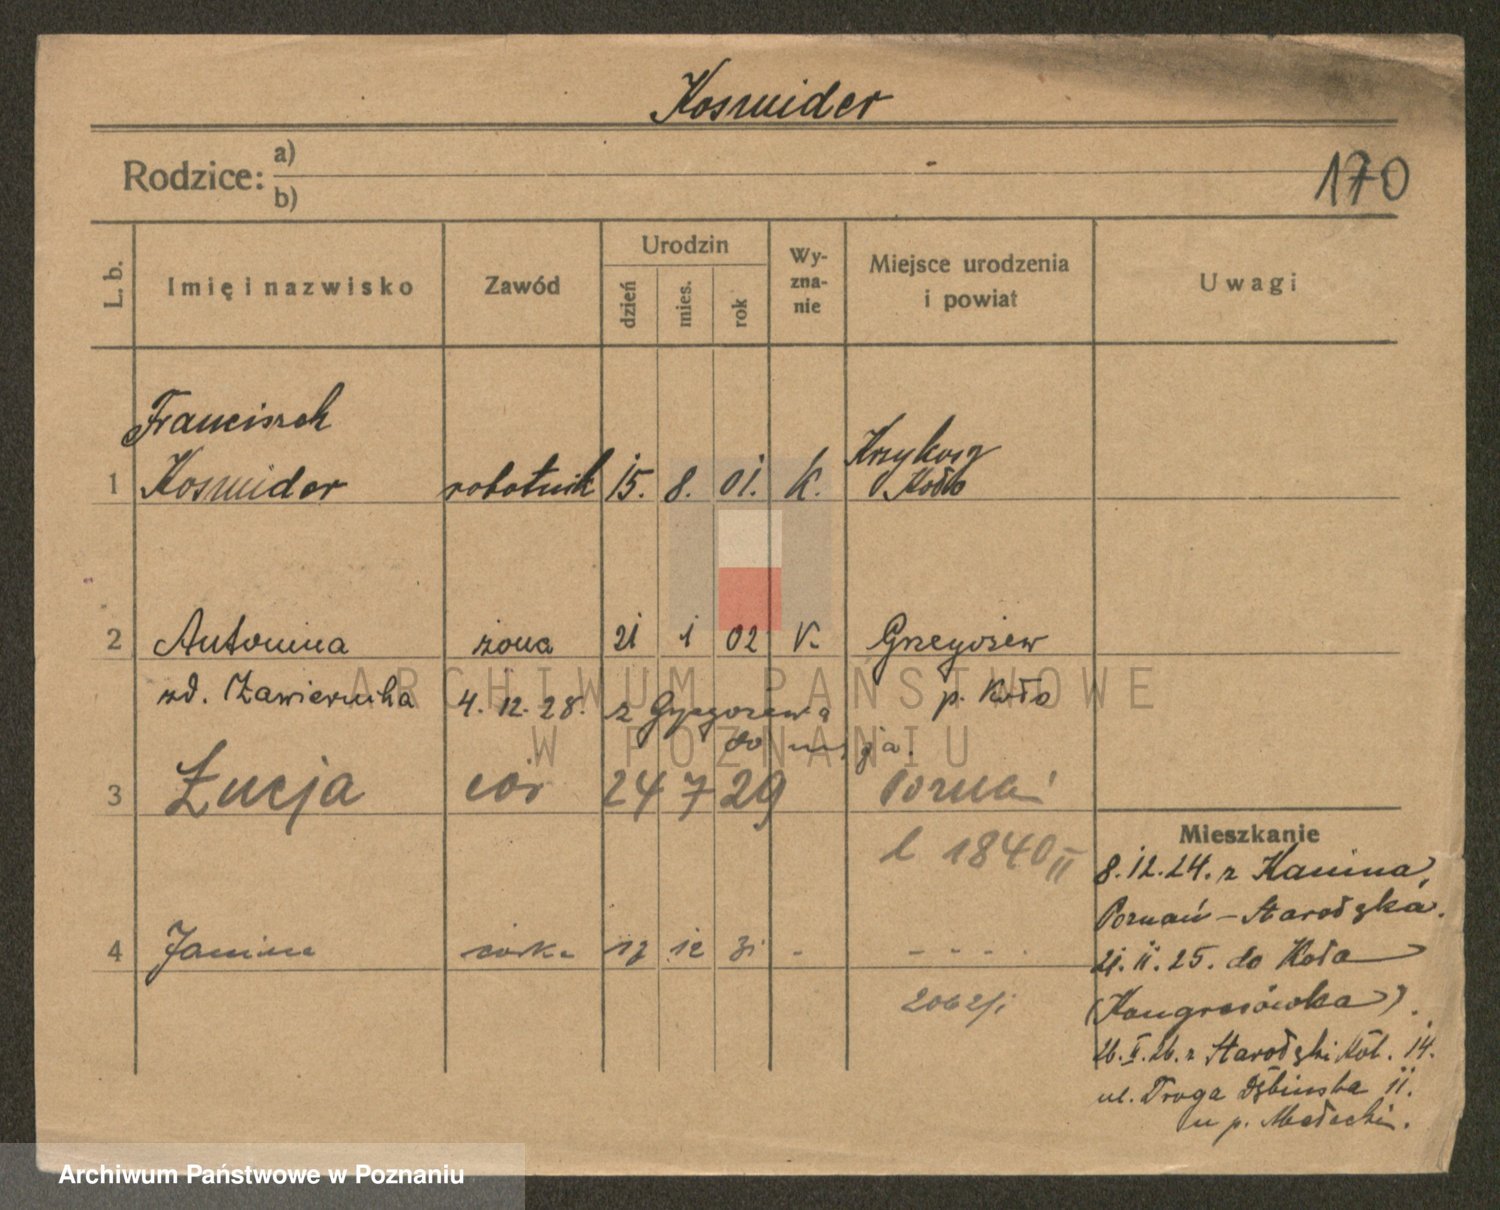 Kosmider
Rodzice: a)
b)
170
L. b.
Imię i nazwisko
Zawód
Urodzin
dzień
mies.
rok
Wy-
zna-
nie
Miejsce urodzenia
i powiat
Uwagi
Franciszek
1 Kosmider robotnik 15. 8. 01. K. Krzykosy
Koło
2 Antonina żona 21 1 02 K. Grzegorzew
zd. Zawierucha 4. 12. 28. z Grzegorzewa p. Koło
do msja.
3 Łucja cór 24 7 29 Poznań
l 1840 II
4 Janina córka 12 31 -
Mieszkanie
8. 12. 24. z Kanina,
Poznań - Starołęka.
21. 11. 25. do Koła
(Kongresówka).
26. II. 26. z Starołęki 14.
ul. Droga Dębińska 11.
u p. Małecki.
ARCHIWUM PAŃSTWOWE
W POZNANIU
Archiwum Państwowe w Poznaniu